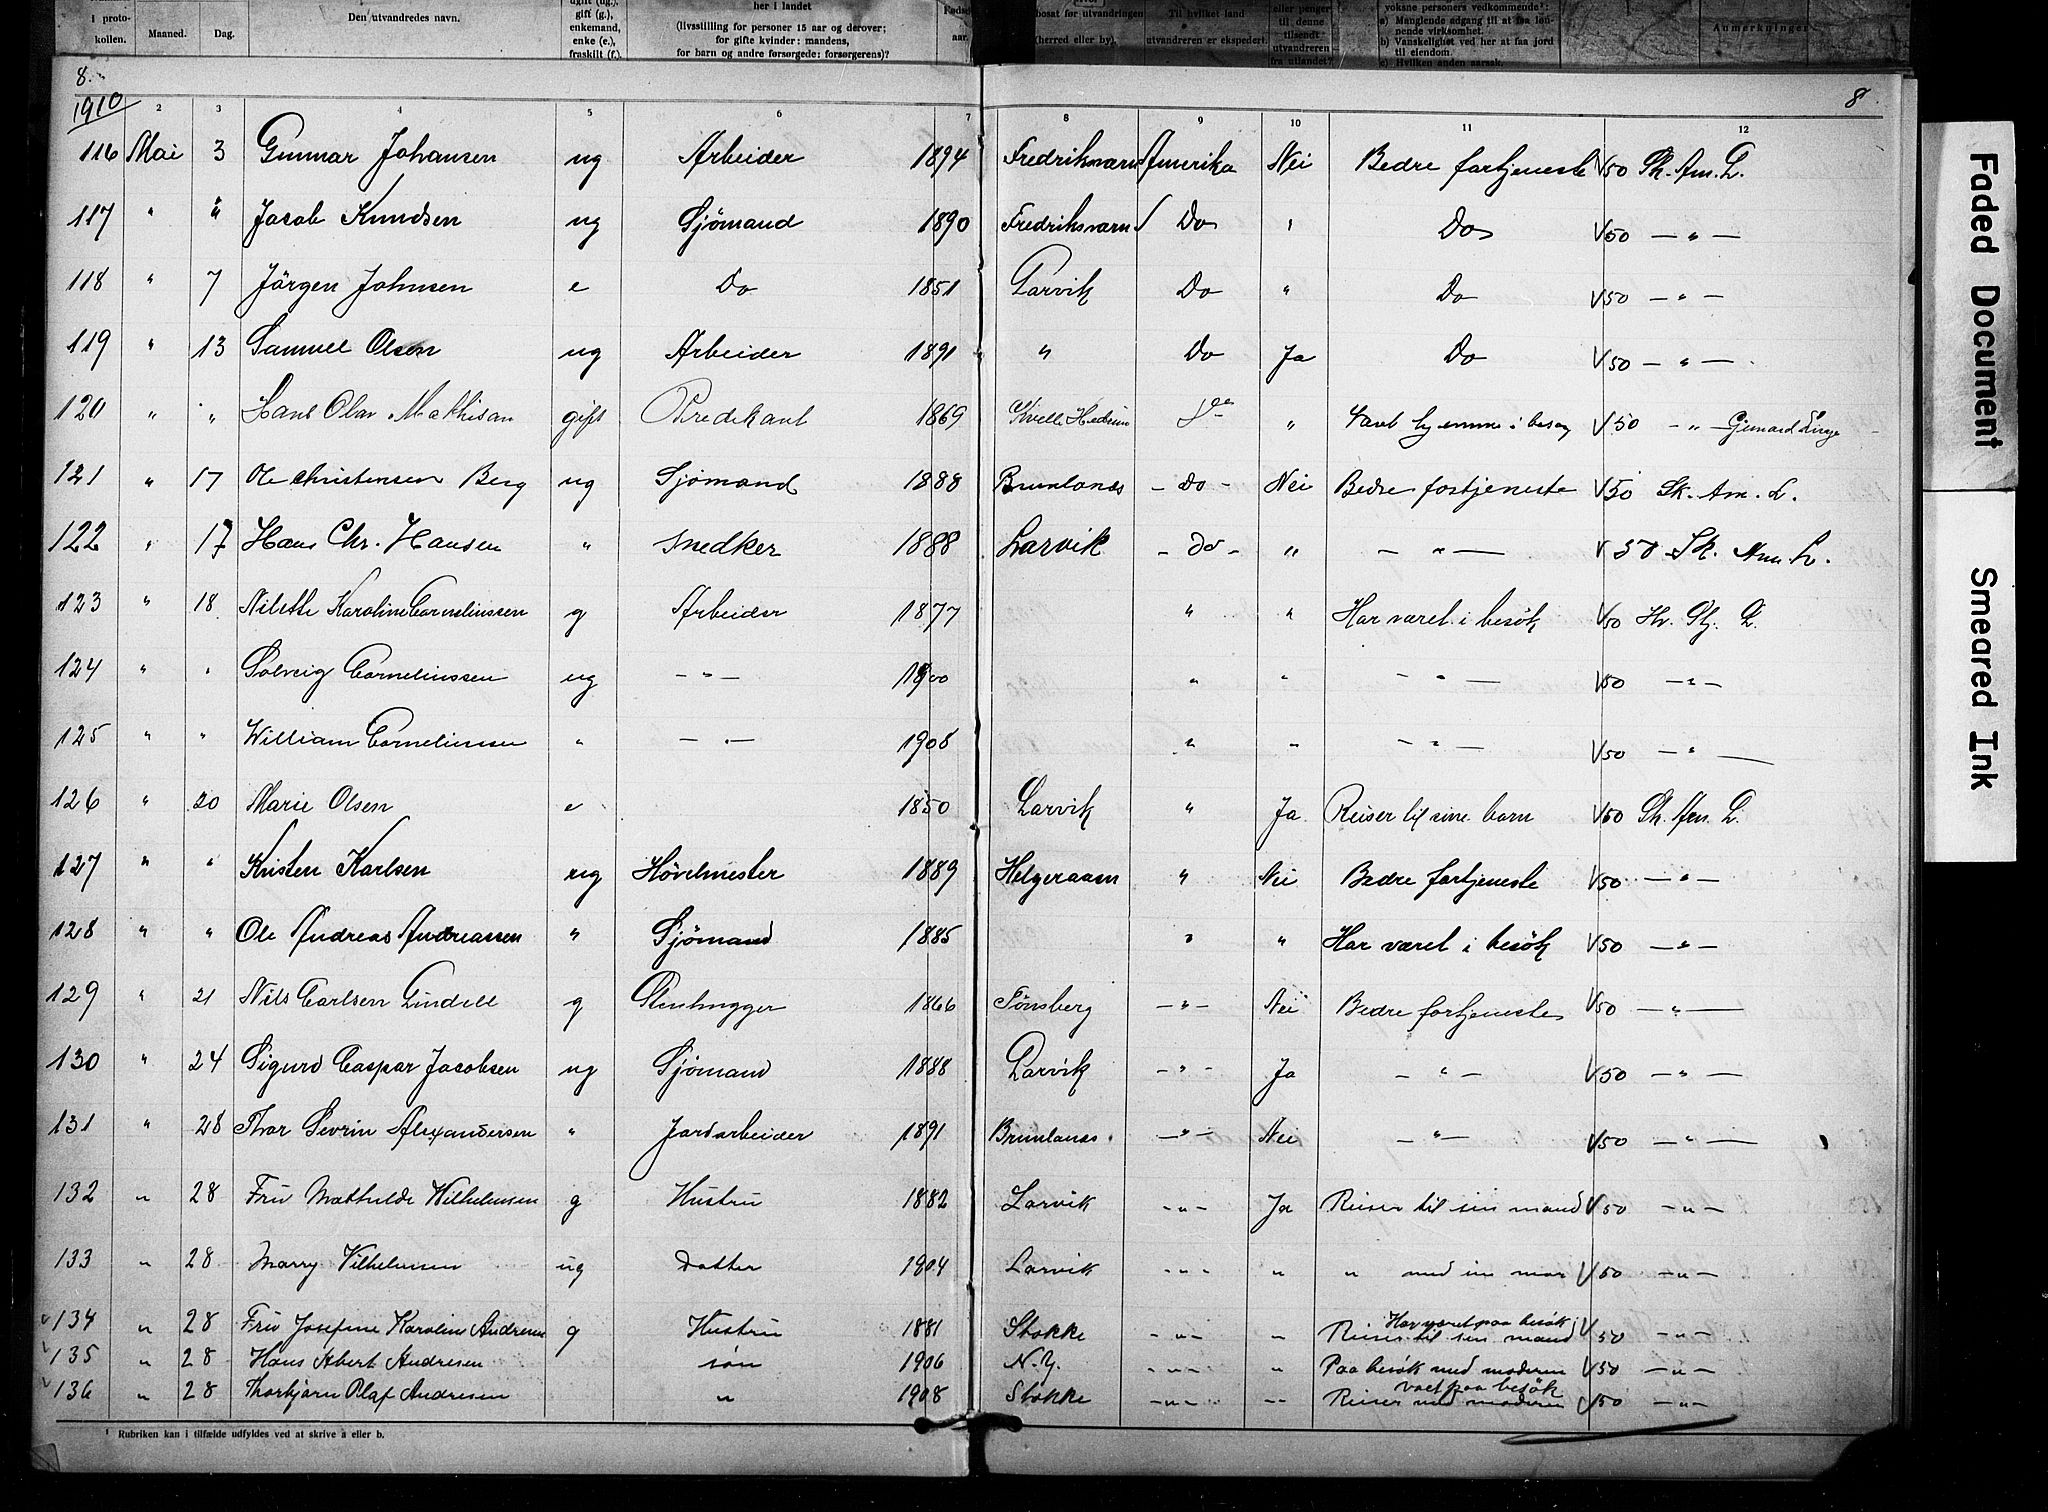 i proto-
kollen.
Maaned.
Dag.
Den utvandredes navn.
gift (g.),
enkemand,
enke (e.),
fraskilt (f.).
her i landet
(livsstilling for personer 15 aar og derover;
for gifte kvinder: mandens,
for barn og andre forsørgede: forsørgerens)?
aar.
bosat før utvandringen
(herred eller by).
Til hvilket land
utvandreren er ekspedert.
eller penger
til denne
tilsendt
utvandreren
fra utlandet?
voksne personers vedkommende¹:
a) Manglende adgang til at faa løn-
nende virksomhet.
b) Vanskelighet ved her at faa jord
til eiendom.
c) Hvilken anden aarsak.
Anmerkninger
8.
8.
1910
2 3 4 5 6 7 8 9 10 11 12
116 Mai 3 Gunnar Johansen ug Arbeider 1894 Fredriksværn Amerika Nei Bedre fortjeneste V50 Sk. Am. L.
117 " " Jacob Knudsen ug Sjömand 1890 Fredriksværn Do " Do V50 — " —
118 " 7 Jörgen Johnsen e Do 1851 Larvik Do " Do V50 — " —
119 " 13 Samuel Olsen ug Arbeider 1891 " Do Ja Do V50 — " —
120 " " Hans Olav Mathisen gift Predikant 1869 Kvelle Hedrum Do " Været hjemme i besøg V50 — " —
121 " 17 Ole Christensen Berg ug Sjømand 1888 Brunlanes - Do - Nei Bedre fortjeneste V50 Sk. Am. L.
122 " 17 Hans Chr. Hansen " Snedker 1888 Larvik - Do - " — " — V 50 Sk. Am. L.
123 " 18 Nilette Karoline Corneliussen g Arbeider 1877 " " Har været i besök V50
124 " " Solveig Corneliussen ug — " — 1900 " " — " — V50 — " —
125 " " William Corneliussen " — " — 1908 " " — " — V50 — " —
126 " 20 Marie Olsen e 1850 Larvik " Ja Reiser til sine barn V50 Sk. Am. L.
127 " " Kristen Karlsen ug Hövelmester 1889 Helgeraaen " Nei Bedre fortjeneste V50 — " —
128 " " Ole Andreas Andreassen " Sjömand 1885 " " Har været i besök V50 — " —
129 " 21 Nils Carlsen Lindell g Stenhugger 1866 Tönsberg — " — Nei Bedre fortjeneste V50 — " —
130 " 24 Sigurd Caspar Jacobsen ug Sjömand 1888 Larvik — " — Ja — " — V50 — " —
131 " 28 Thor Sevrin Alexandersen " Jordarbeider 1891 Brunlanes. — " — Nei — " — V50 — " —
132 " 28 Fru Mathilde Wilhelmsen g Hustru 1882 Larvik - " - Ja Reiser til sin mand V50 — " —
133 " 28 Marry Vilhelmsen ug Datter 1904 Larvik - " - " " med sin mor V50 — " —
134 " 28 Fru Josefine Karolin Andresen g Hustru 1881 Stokke - " - " Har været paa besök Reiser til sin mand V50 — " —
135 " 28 Hans Abert Andresen søn 1906 N.Y. - " - " Paa besök med moderen V50 — " —
136 " 28 Thorbjørn Olaf Andresen " 1908 Stokke - " - " Vært paa besök Reiser med moderen V50 — " —
¹ Rubriken kan i tilfælde utfyldes ved at skrive a eller b.
Faded Document
Smeared Ink